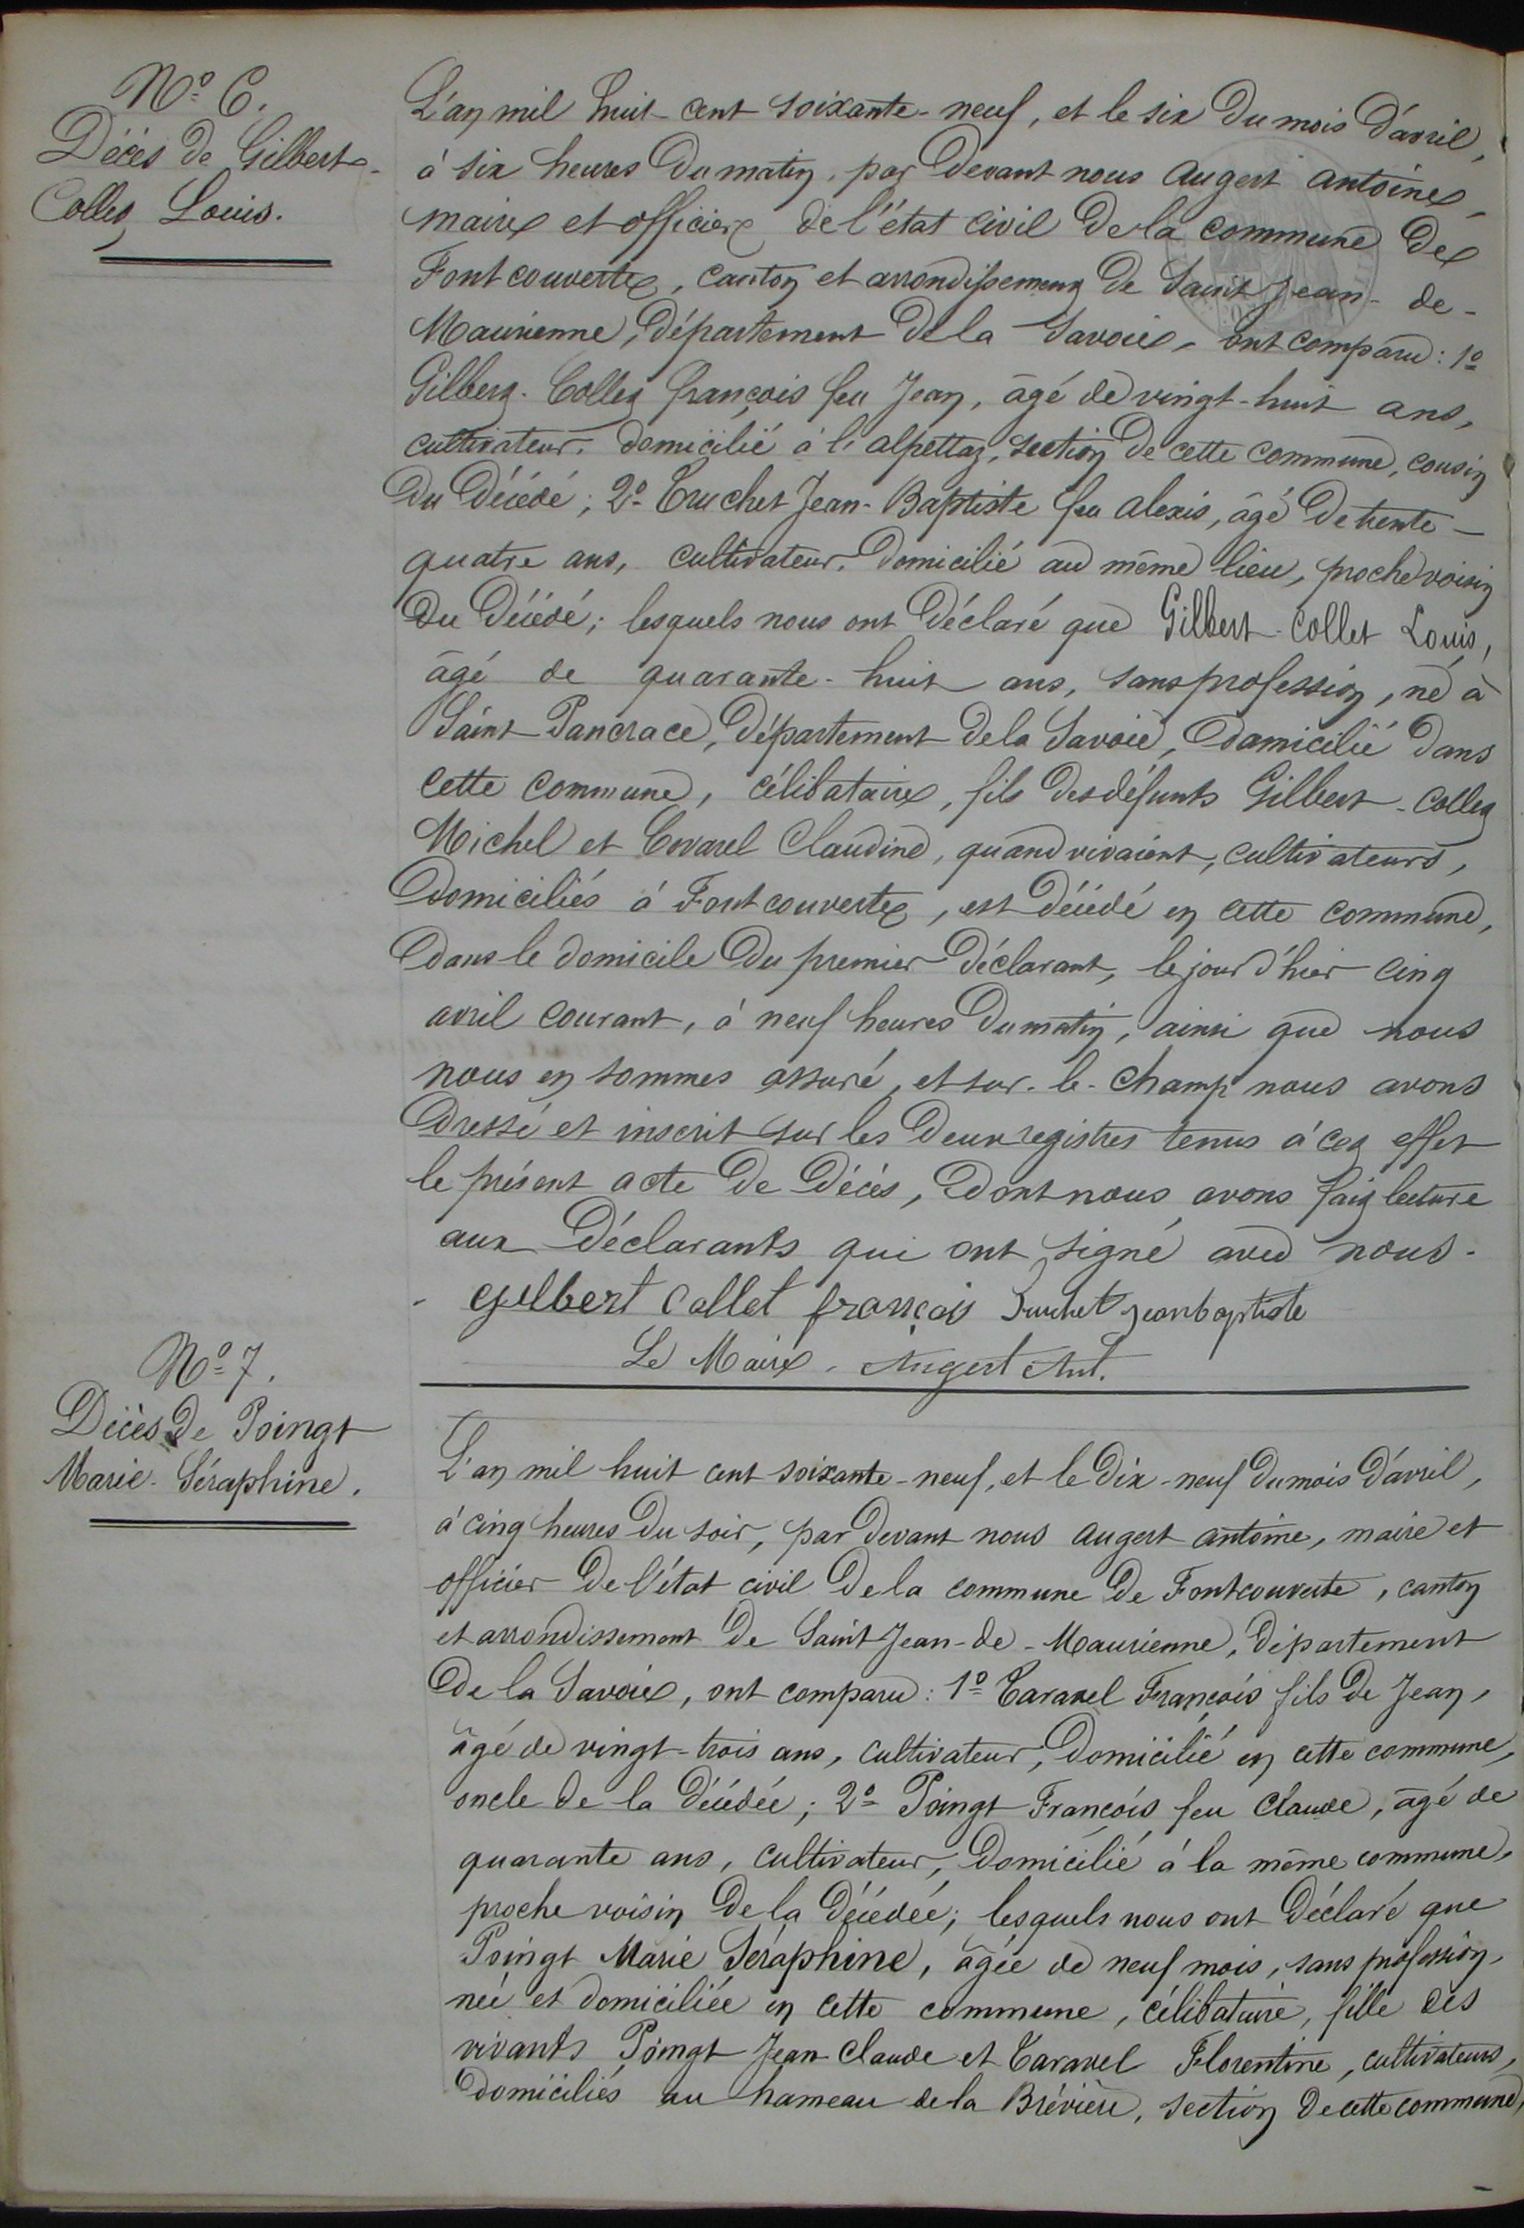 N.º 6.
Décès de Gilbert-
Collet Louis.
L'an mil huit-cent soixante-neuf, et le six du mois d'avril,
à six heures du matin, par devant nous Augert Antoine,
maire et officier de l'état civil de la commune de
Fontcouverte, canton et arrondissement de Saint Jean-de-
Maurienne, département de la Savoie, ont comparu: 1º
Gilbert-Collet françois feu Jean, âgé de vingt-huit ans,
cultivateur, domicilié à l'alpettaz, section de cette commune, cousin
du décédé; 2º Truchet Jean-Baptiste feu Alexis, âgé de trente-
quatre ans, cultivateur, domicilié au même lieu, proche voisin
du décédé; lesquels nous ont déclaré que Gilbert-Collet Louis,
âgé de quarante-huit ans, sans profession, né à
Saint-Pancrace, département de la Savoie, domicilié dans
cette commune, célibataire, fils des défunts Gilbert-Collet
Michel et Covarel Claudine, quand vivaient, cultivateurs,
domiciliés à Fontcouverte, est décédé en cette commune,
dans le domicile du premier déclarant, le jour d'hier cinq
avril courant, à neuf heures du matin, ainsi que nous
nous en sommes assuré, et sur-le-champ nous avons
dressé et inscrit sur les deux registres tenus à cet effet
le présent acte de décès, dont nous avons fait lecture
aux déclarants qui ont signé avec nous.
Gilbert Collet françois Truchet jeanbaptiste
Le Maire, Augert Ant.
N.º 7.
Décès de Poingt
Marie-Séraphine.
L'an mil huit cent soixante-neuf, et le dix-neuf du mois d'avril,
à cinq heures du soir, par devant nous Augert Antoine, maire et
officier de l'état civil de la commune de Fontcouverte, canton
et arrondissement de Saint Jean-de-Maurienne, département
de la Savoie, ont comparu: 1º Taravel François fils de Jean,
âgé de vingt-trois ans, cultivateur, domicilié en cette commune,
oncle de la décédée; 2º Poingt François feu Claude, âgé de
quarante ans, cultivateur, domicilié à la même commune,
proche voisin de la décédée; lesquels nous ont déclaré que
Poingt Marie Séraphine, âgée de neuf mois, sans profession,
née et domiciliée en cette commune, célibataire, fille des
vivants Poingt Jean Claude et Taravel Florentine, cultivateurs,
domiciliés au hameau de la Brévière, section de cette commune,